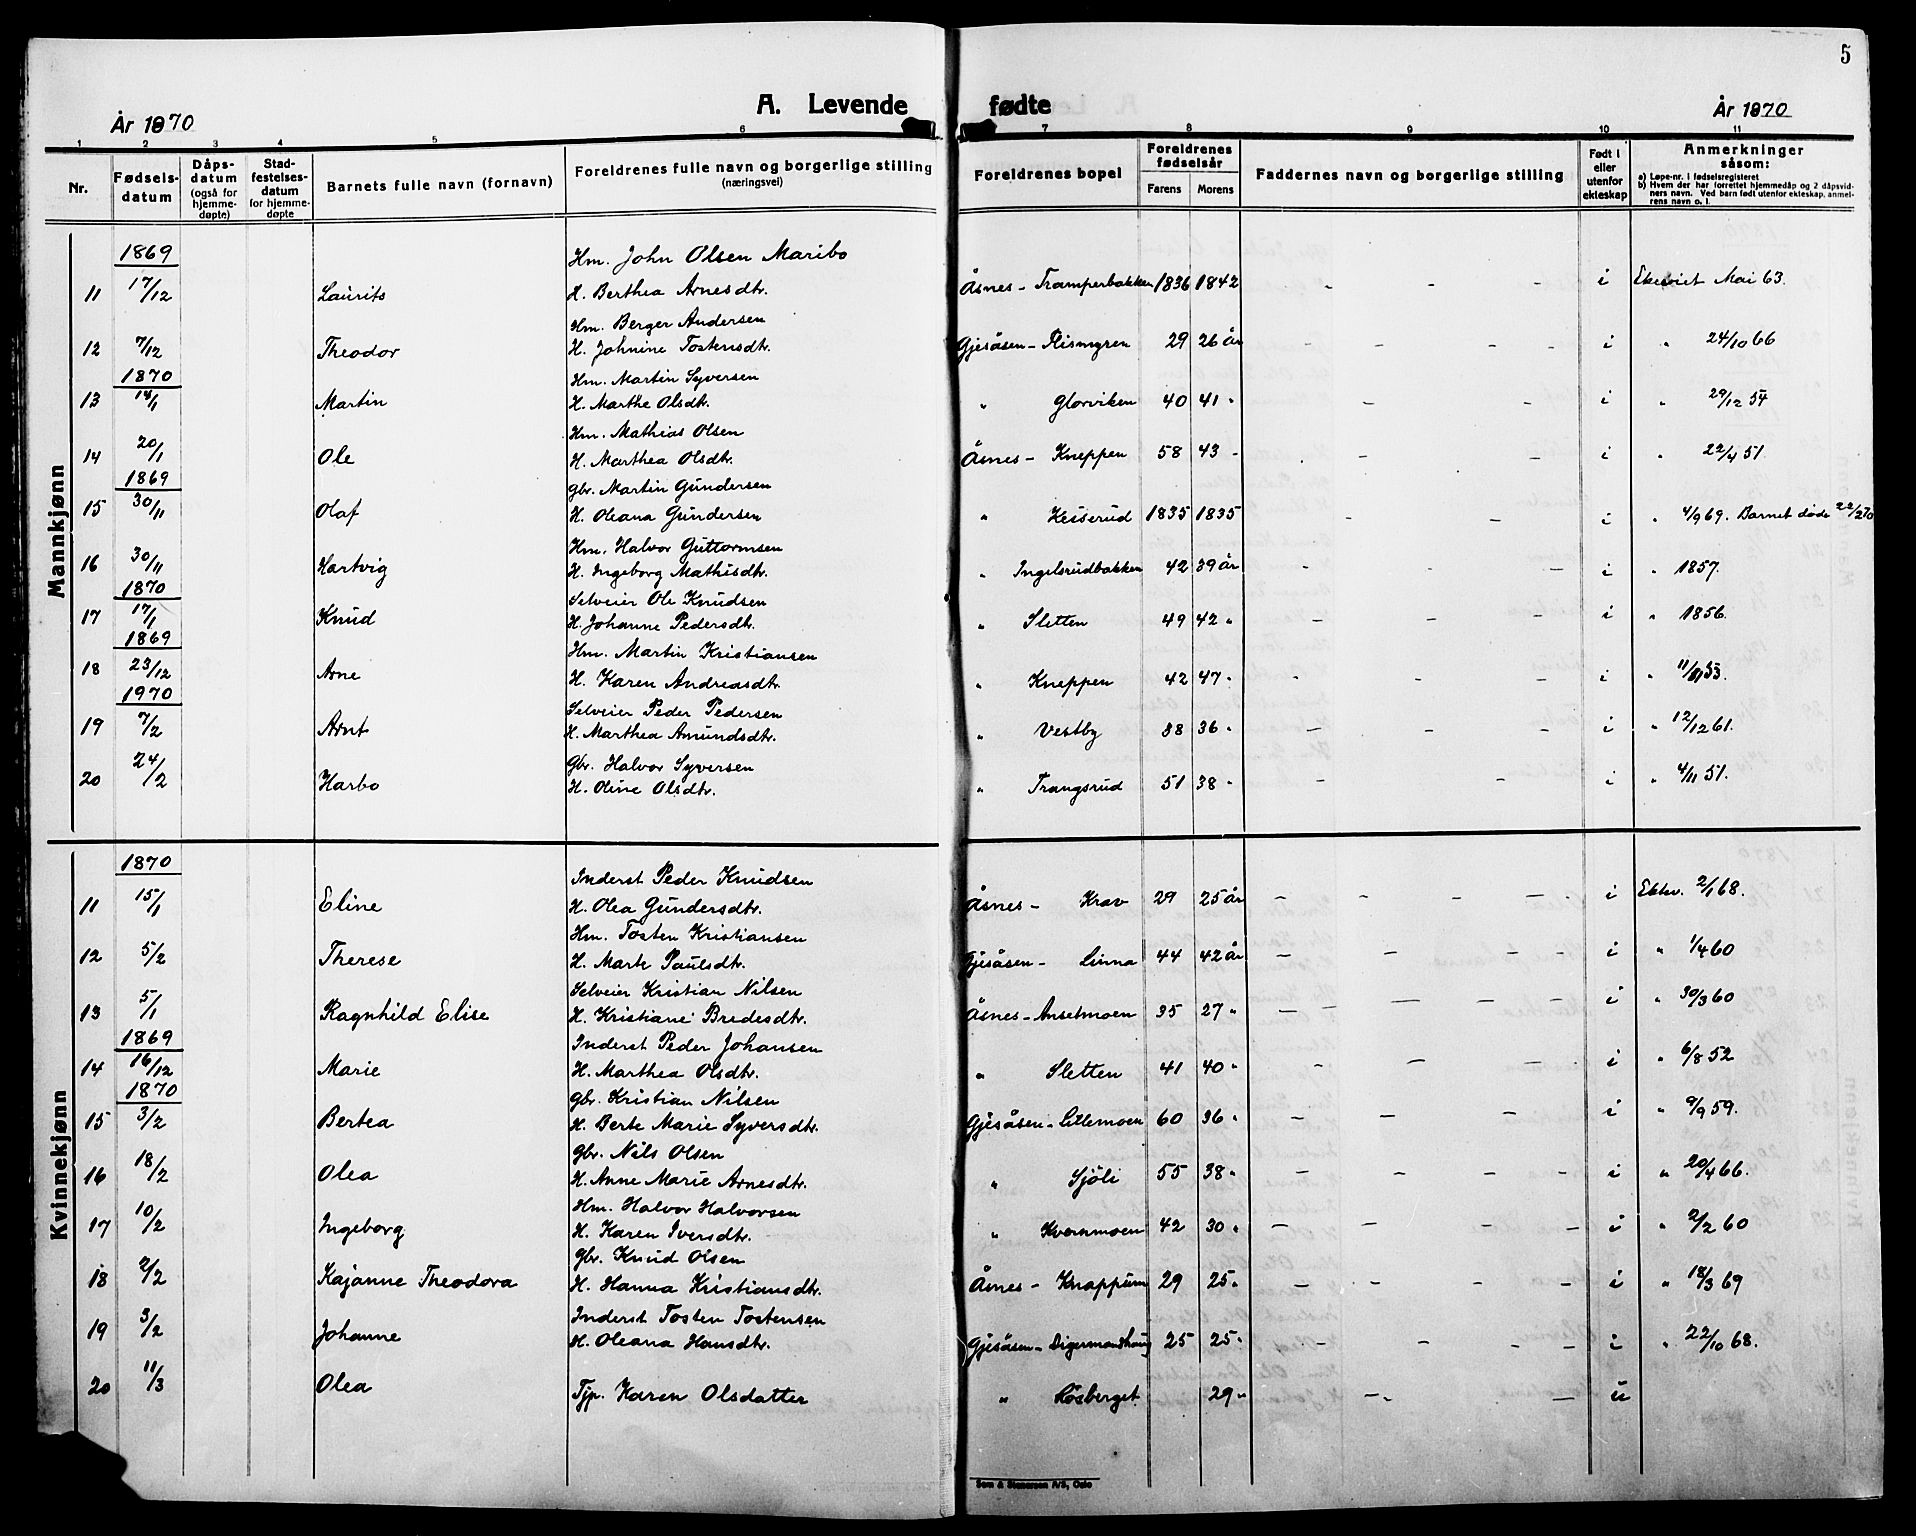 5
A. Levende fødte
År 1870
År 1870
1 2 3 4 5 6 7 8 9 10 11
Nr.
Fødsels-
datum
Dåps-
datum
(også for
hjemme-
døpte)
Stad-
festelses-
datum
for hjemme-
døpte
Barnets fulle navn (fornavn)
Foreldrenes fulle navn og borgerlige stilling
(næringsvei)
Foreldrenes bopel
Foreldrenes
fødselsår
Farens Morens
Faddernes navn og borgerlige stilling
Født i
eller
utenfor
ekteskap
Anmerkninger
såsom:
a) Løpe-nr. i fødselsregisteret
b) Hvem der har forrettet hjemmedåp og 2 dåpsvid-
ners navn. Ved barn født utenfor ekteskap, anmel-
rens navn o. l.
Mannkjønn
1869 Hm. John Olsen Maribo
11 17/12 Laurits H. Berthea Arnesdtr. Åsnes - Tramperbakken 1836 1842 - - - i Ekeviet Mai 63.
Hm. Berger Andersen
12 7/12 Theodor H. Johnine Tostensdtr. Gjesåsen - Rismyren 29 26 år - - - i " 24/10 66
1870 Hm. Martin Syversen
13 14/1 Martin H. Marthe Olsdtr. " Glorviken 40 41 " - - i " 29/12 54
Hm. Mathias Olsen
14 20/1 Ole H. Marthea Olsdtr. Åsnes - Kneppen 58 43 - - - i " 22/4 51
1869 Gbr. Martin Gundersen
15 30/11 Olaf H. Oleana Gundersen " Kesserud 1835 1835 - - i " 4/9 69. Barnet døde 22/2 70
Hm. Halvor Guttormsen
16 30/11 Hartvig H. Ingeborg Mathisdtr. " Ingelsrudbakken 42 39 år - - - i " 1857.
1870 Selveier Ole Knudsen
17 17/1 Knud H. Johanne Pedersdtr. " Sletten 49 42 " - - - i " 1856.
1869 Hm. Martin Kristiansen
18 23/12 Arne H. Karen Andreasdtr. " Kneppen 42 47 " - - - i " 11/11 53.
1970 Selveier Peder Pedersen
19 7/2 Arnt H. Marthea Amundsdtr. " Vestby 38 36 " - - - i " 12/12 61.
Gbr. Halvor Syversen
20 24/2 Harbo H. Oline Olsdtr. " Trangsrud 51 38 " - - i " 4/11 51.
Kvinnekjønn
1870 Inderst Peder Knudsen
11 15/1 Eline H. Olea Gundersdtr. Åsnes - Krav 29 25 år - - - - i Ektev. 2/1 68.
Hm. Tosten Kristiansen
12 5/2 Therese H. Marte Paulsdtr. Gjesåsen - Linna 44 42 år - - - - i " 1/4 60
Selveier Kristian Nilsen
13 5/1 Ragnhild Elise H. Kristiane Bredesdtr. Åsnes - Anselmoen 35 27 " - - - - - i " 30/3 60
1869 Inderst Peder Johansen
14 16/12 Marie H. Marthea Olsdtr. " Sletten 41 40 " - - - i " 6/8 52
1870 Gbr. Kristian Nilsen
15 3/2 Bertea H. Berte Marie Syversdtr. Gjesåsen - Lillemoen 60 36 " - - - - i " 9/9 59.
Gbr. Nils Olsen
16 18/2 Olea H. Anne Marie Arnesdtr. " Sjöli 55 38 " - - - - i " 20/4 66.
Hm. Halvor Halvorsen
17 10/2 Ingeborg H. Karen Iversdtr. " Kvernmoen 42 30 " - - - - - i " 2/2 60
Gbr. Knud Olsen
18 2/2 Kajanne Theodora H. Hanna Kristiansdtr. Åsnes - Knappum 29 25 " - - - - i " 18/3 69
Inderst Tosten Tostensen
19 3/2 Johanne H. Oleana Hansdtr. Gjesåsen - Digermandhaug 25 25 " - - - - i " 22/10 68.
20 11/3 Olea Tjp. Karen Olsdatter " Løsberget 29 " - - - u
Sem & Stenersen A/S, Oslo